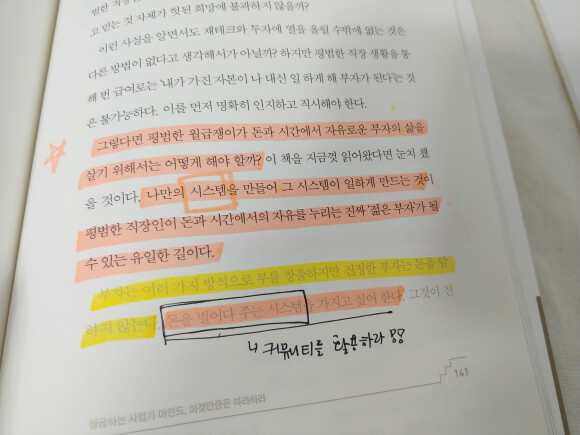 범한 직장
고 믿는 것 자체가 헛된 희망에 불과하지 않을까?
이런 사실을 알면서도 재테크와 투자에 열을 올릴 수밖에 없는 것은
다른 방법이 없다고 생각해서가 아닐까? 하지만 평범한 직장 생활을 통
해 번 급여로는 '내가 가진 자본이 나 대신 일 하게 해 부자가 된다'는 것
은 불가능하다. 이를 먼저 명확히 인지하고 직시해야 한다.
그렇다면 평범한 월급쟁이가 돈과 시간에서 자유로운 부자의 삶을
살기 위해서는 어떻게 해야 할까? 이 책을 지금껏 읽어왔다면 눈치 챘
을 것이다. 나만의 시스템을 만들어 그 시스템이 일하게 만드는 것이
평범한 직장인이 돈과 시간에서의 자유를 누리는 진짜 '젊은 부자'가 될
수 있는 유일한 길이다.
부자는 여러 가지 방식으로 부를 창출하지만 진정한 부자는 돈을 탐
하지 않는다. 돈을 벌어다 주는 시스템을 가지고 싶어 한다. 그것이 진
↳ 커뮤니티를 활용하라!!
141
성공하는 사업가 마인드, 이것만큼은 따라하라